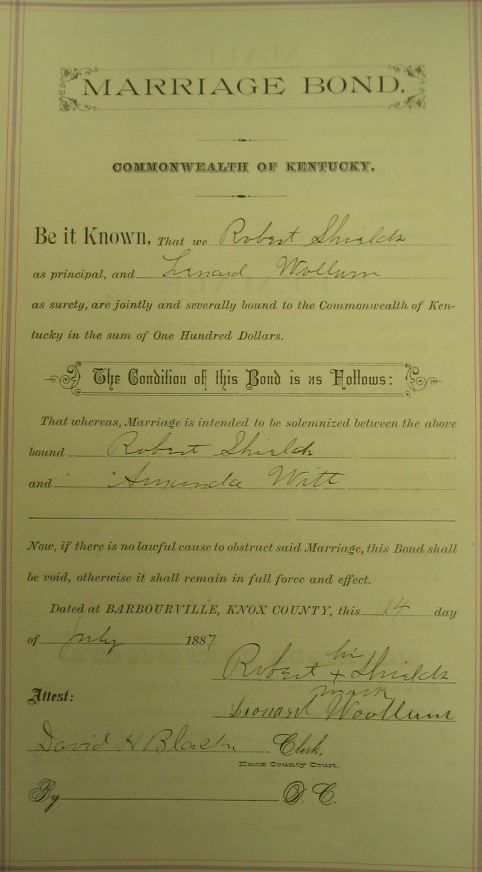 MARRIAGE BOND.
COMMONWEALTH OF KENTUCKY.
Be it Known, That we Robert Shields
as principal, and Lenard Wollum
as surety, are jointly and severally bound to the Commonwealth of Ken-
tucky in the sum of One Hundred Dollars.
The Condition of this Bond is as Follows:
That whereas, Marriage is intended to be solemnized between the above
bound Robert Shields
and Amanda Witt
Now, if there is no lawful cause to obstruct said Marriage, this Bond shall
be void, otherwise it shall remain in full force and effect.
Dated at BARBOURVILLE, KNOX COUNTY, this 14 day
of July 1887
his
Robert + Shields
mark
Attest:
Leonard Woollum
David H Clerk,
Knox County Court.
By D. C.